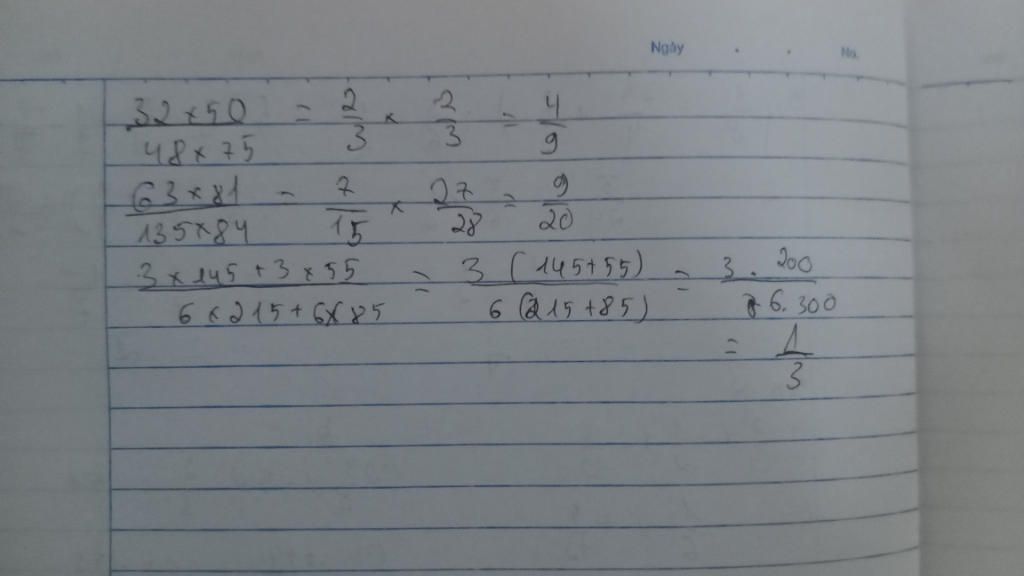 Ngày . . No.
32 × 50 / 48 × 75 = 2/3 × 2/3 = 4/9
63 × 81 / 135 × 84 = 7/15 × 27/28 = 9/20
3 × 145 + 3 × 55 / 6 × 215 + 6 × 85 = 3 (145+55) / 6 (215+85) = 3 . 200 / 6. 300
= 1/3